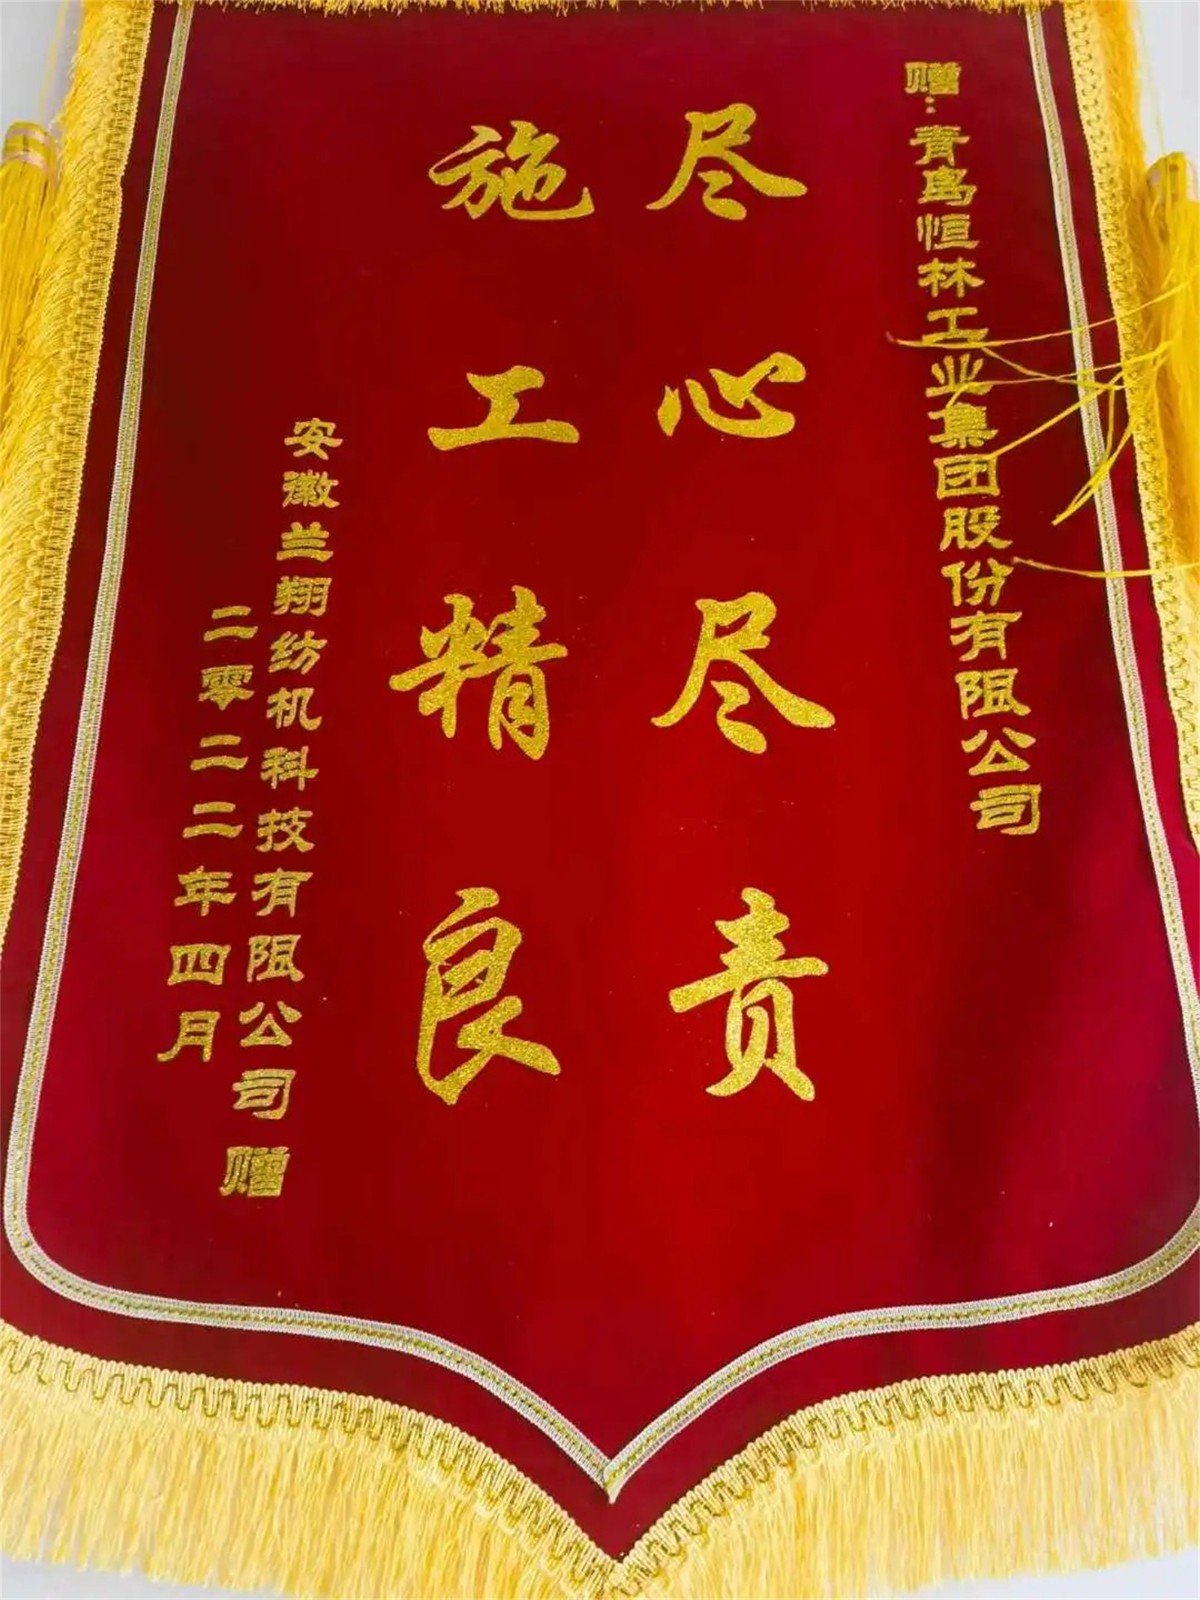 赠：青岛恒林工业集团股份有限公司
尽心尽责
施工精良
安徽兰翔纺机科技有限公司赠
二零二二年四月